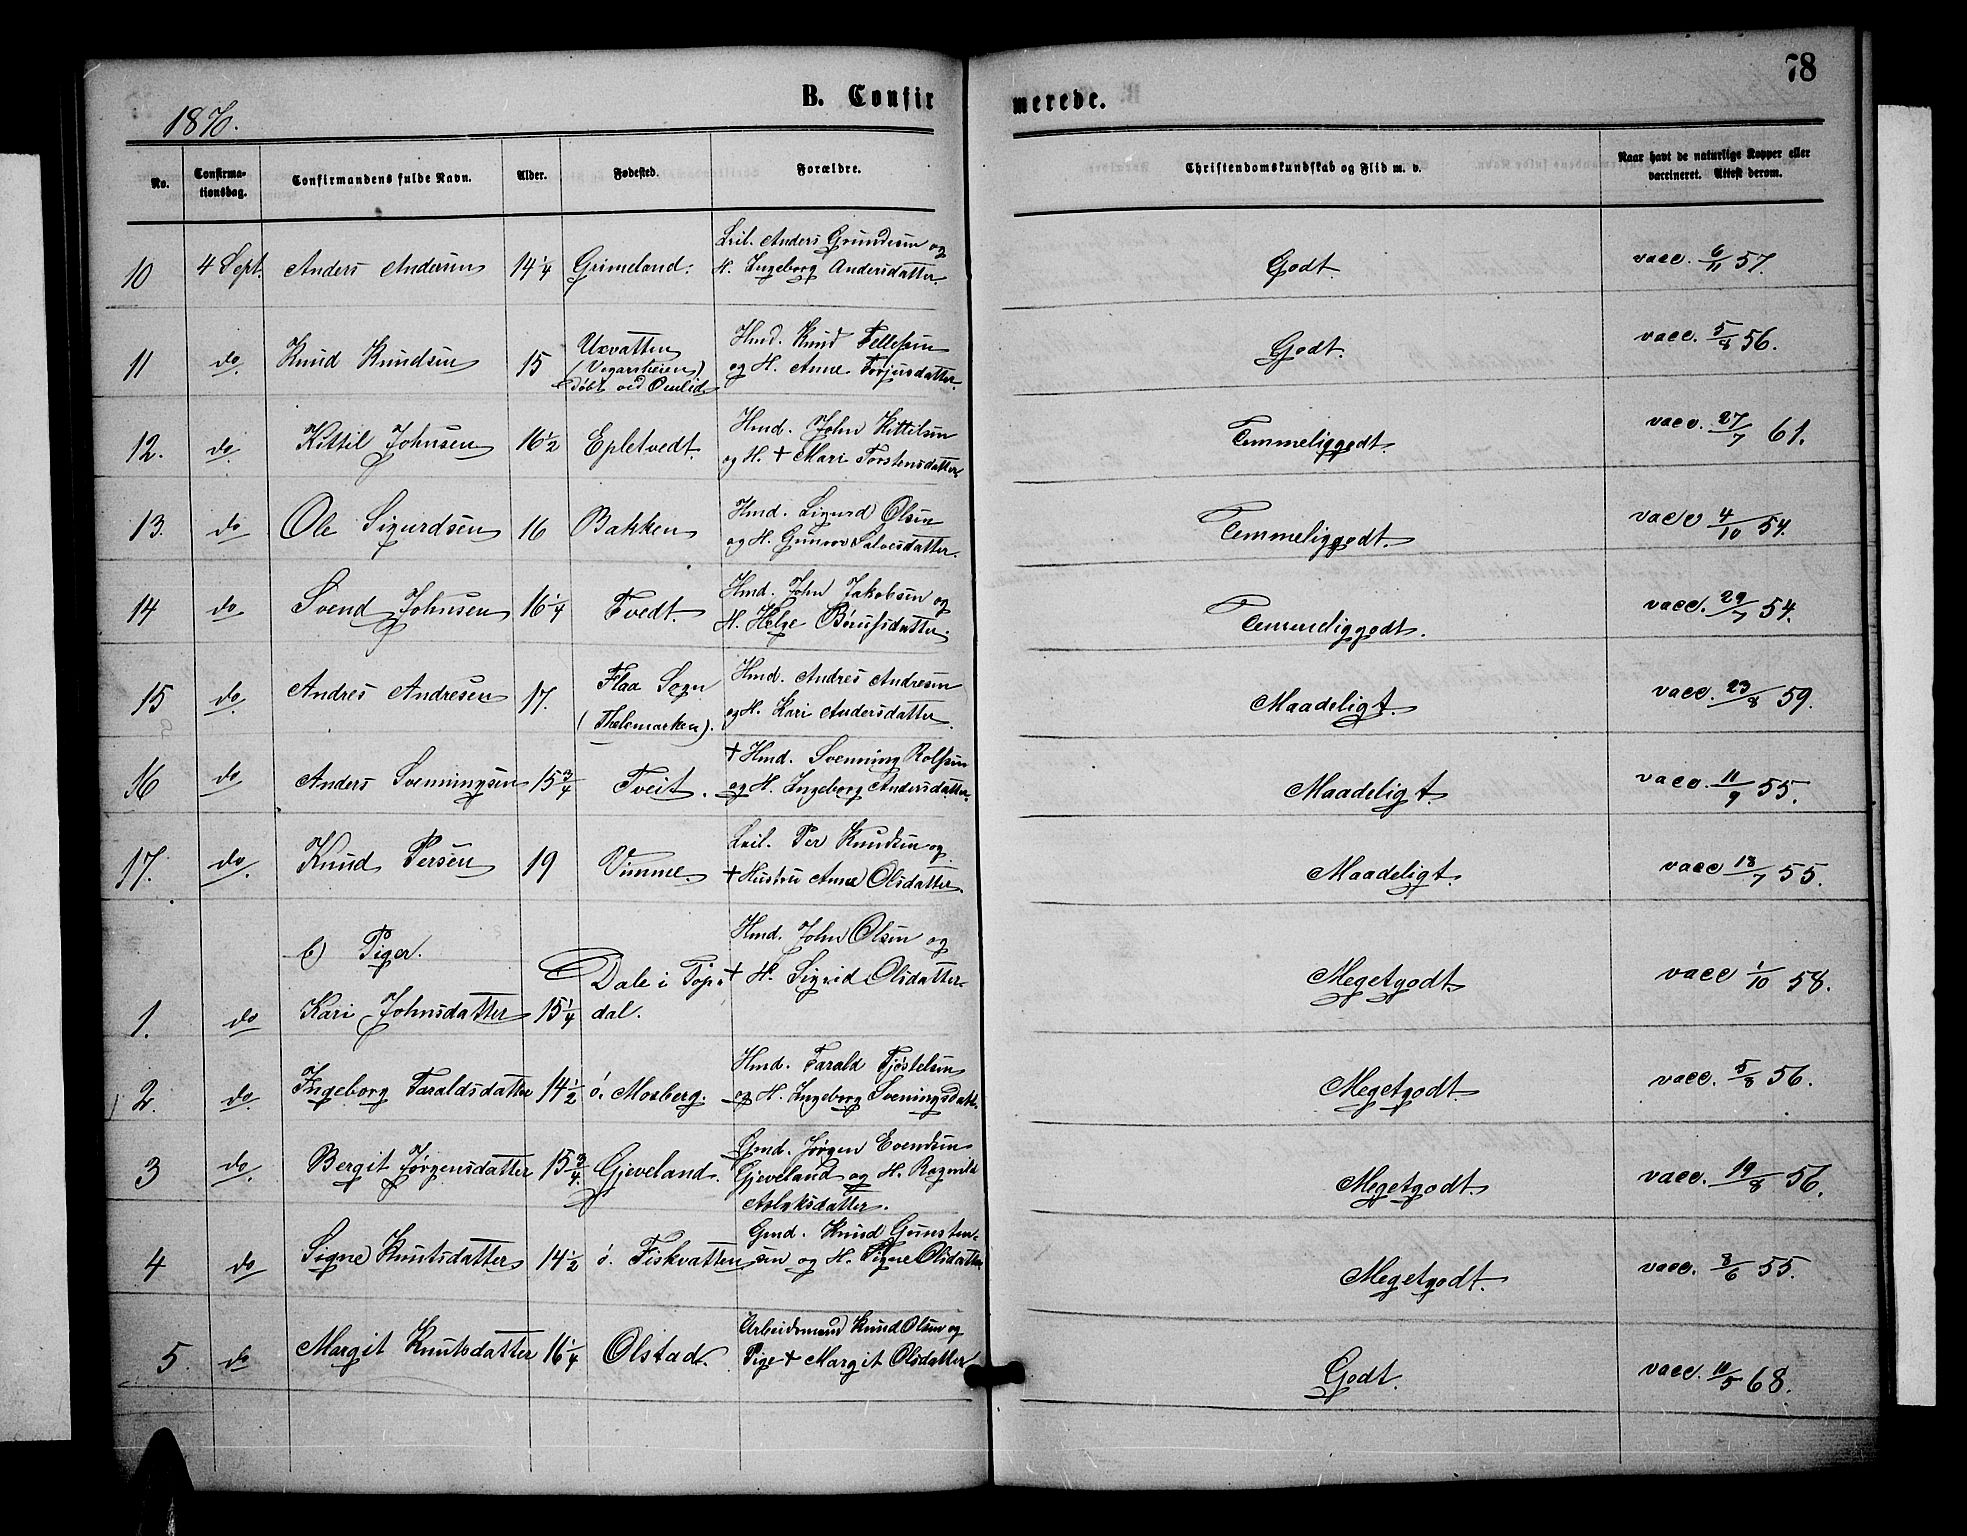 78
B. Confirmerede.
1870.
No. Confirmationsdag. Confirmandens fulde Navn. Alder. Fødested. Forældre. Christendomskundskab og Flid m. v. Naar havt de naturlige Kopper eller vaccineret. Attest derom.
10 4 Sept. Anders Andersen 14 1/4 Grimeland. Anders Gundersen og
H. Ingeborg Andersdatter. Godt. vacc. 6/11 57.
11 do Knud Knudsen 15 Uxvatten
(Vegarsheien)
døbt ved Omlid Hmd. Knud Tellefsen
og H. Anne Torjusdatter. Godt. vacc. 5/8 56.
12. do Kittil Johnsen 16 1/2 Epletvedt. Hmd. John Kittilsen
og H. + Mari Torstensdatter Temmeliggodt. vacc. 27/7 61.
13. do Ole Sigurdsen 16 Bakken Hmd. Sigurd Olsen
og H. Gunvor Salvesdatter. Temmeliggodt. vacc 4/10 54.
14 do Svend Johnsen 16 1/4 Tvedt. Hmd. John Jakobsen og
H. Helge Datter. Temmeliggodt. vacc. 29/7 54.
15 do Andres Andresen 17. Flaa Sogn
(Thelemarken). Hmd. Andres Andresen
og H. Kari Andersdatter. Maadeligt. vacc. 23/8 59.
16 do Anders Svenningsen 15 3/4 Tveit. + Hmd. Svenning Rolfsen
og H. Ingeborg Andersdatter. Maadeligt. vacc. 11/9 55.
17. do. Knud Persen 19 Vimme. Per Knudsen og
+ Hustru Anne Olsdatter. Maadeligt. vacc 18/7 55.
b) Piger.
1. do Kari Johnsdatter 15 1/4 Dale i Top-
dal. Hmd. John Olsen og
+ H. Sigrid Olsdatter. Megetgodt. vacc 1/10 58.
2. do. Ingeborg Taraldsdatter 14 1/2 ö. Mosberg. Hmd. Tarald Tjöstelsen
og H. Ingeborg Sveningsdatt. Megetgodt. vacc. 5/8 56.
3 do. Bergit Jørgensdatter 15 3/4. Gjeveland. Gmd. Jørgen Evendsen
Gjeveland og H. Ragnild
Aslaksdatter. Megetgodt. vacc. 19/8 56.
4 do Signe Knutsdatter 14 1/2 ö. Fiskvatten Gmd. Knud Gunsten-
sen og H. Signe Olsdatter Megetgodt. vacc. 8/6 55.
5. do Margit Knutsdatter 16 1/4 Olstad. Arbeidsmand Knud Olsen og
Pige + Margit Olsdatter Godt. vacc. 10/5 68.